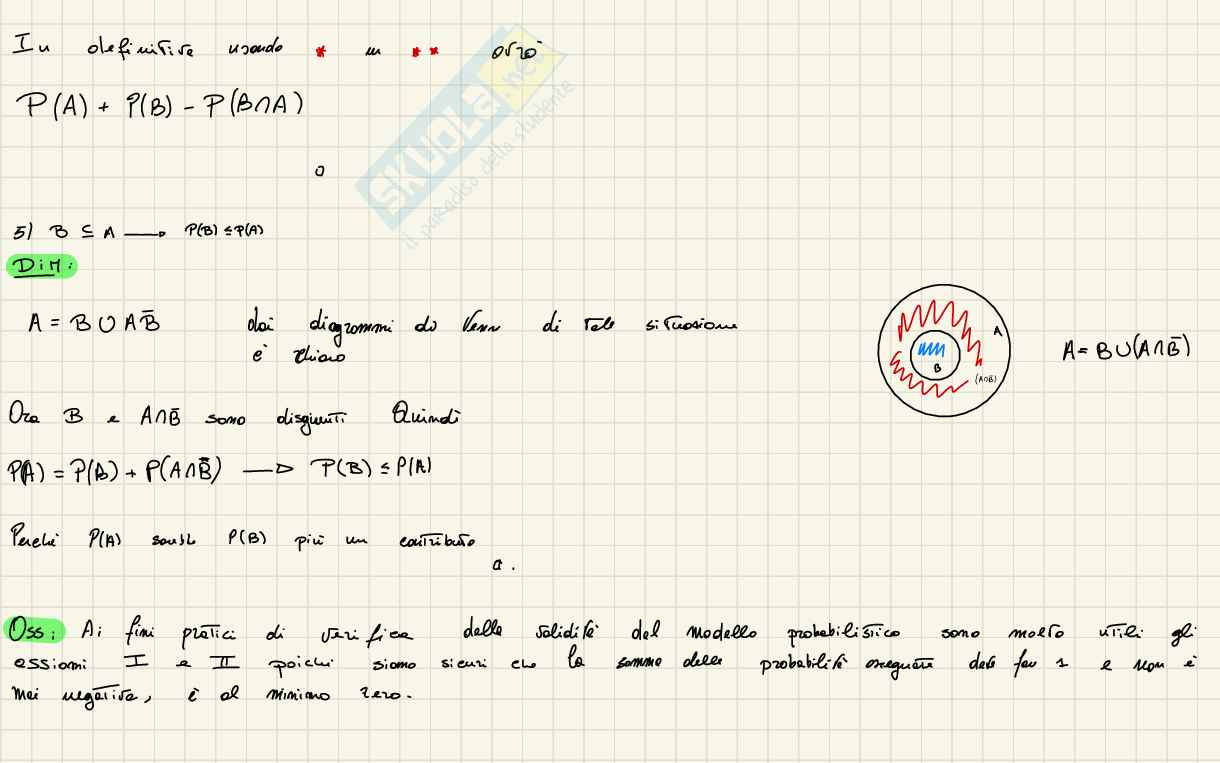 In definitiva usando * in ** avrò
P(A) + P(B) - P(B∩A)
SKUOLA.net
il paradiso dello studente
5) B ⊆ A → P(B) ≤ P(A)
DiM:
A = B ∪ AB̄ dai diagrammi di Venn di tale situazione
è chiaro
A
B
(A∩B)
A = B∪(A∩B̄)
Ora B e A∩B̄ sono disgiunti Quindi
P(A) = P(B) + P(A∩B̄) → P(B) ≤ P(A)
Perché P(A) P(B) più un contributo
Oss: Ai fini pratici di verifica della validità del modello probabilistico sono molto utili gli
assiomi I e II poiché siamo sicuri che la somma delle probabilità assegnate deve fare 1 e non è
mai negativa, è al minimo zero.